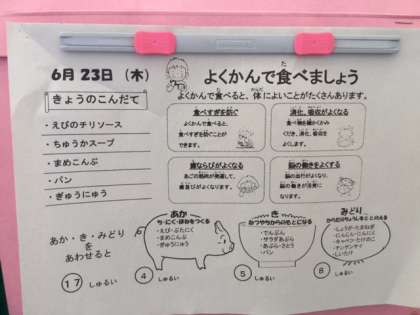 6月 23日 (木)
よくかんで食べましょう
きょうのこんだて
よくかんで食べると、体によいことがたくさんあります。
・えびのチリソース
・ちゅうかスープ
・まめこんぶ
・パン
・ぎゅうにゅう
食べすぎを防ぐ
よくかんで食べると、
食べすぎを防ぐことが
できます。
消化、吸収がよくなる
食べ物を細かくかみ
くだき、消化、吸収を
よくします。
歯ならびがよくなる
あごの筋肉が発達して、
歯並びがよくなります。
脳の働きをよくする
脳の血行がよくなり、
脳の働きが活発に
なります。
あか・き・みどり
を
あわせると
17 しゅるい
あか
ち・にく・ほねをつくる
・えび・ぶたにく
・まめこんぶ
・ぎゅうにゅう
4 しゅるい
き
ねつやちからのもとになる
・でんぷん
・サラダあぶら
・あぶら・さとう
・パン
5 しゅるい
みどり
からだのちょうしをととのえる
・しょうが・たまねぎ
・にんじん・にんにく
・キャベツ・たけのこ
・チンゲンサイ
・しいたけ
8 しゅるい